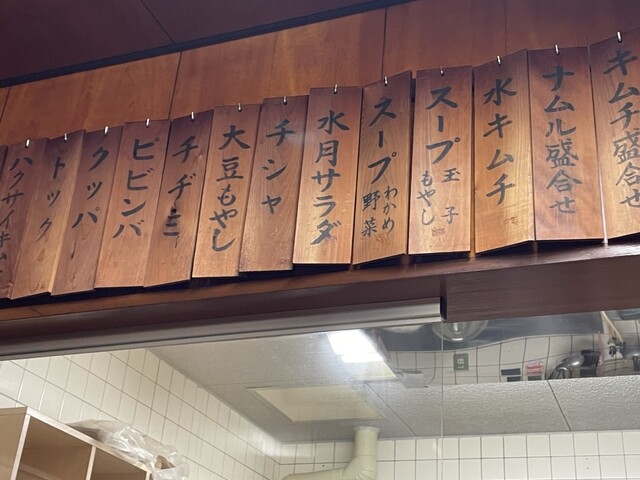 キムチ盛合せ
ナムル盛合せ
水キムチ
スープ
玉子
もやし
スープ
わかめ
野菜
水月サラダ
チシャ
大豆もやし
チヂミ
ピビンバ
クッパ
トック
ハクサイキム